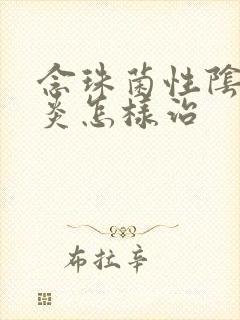 念珠菌性陰
炎怎樣治
布拉辛